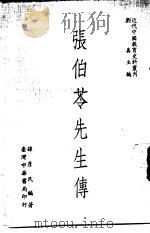 近代中國教育史料叢刊
劉真主編
張伯苓先生傳
孫彥民編著
臺灣中華書局印行